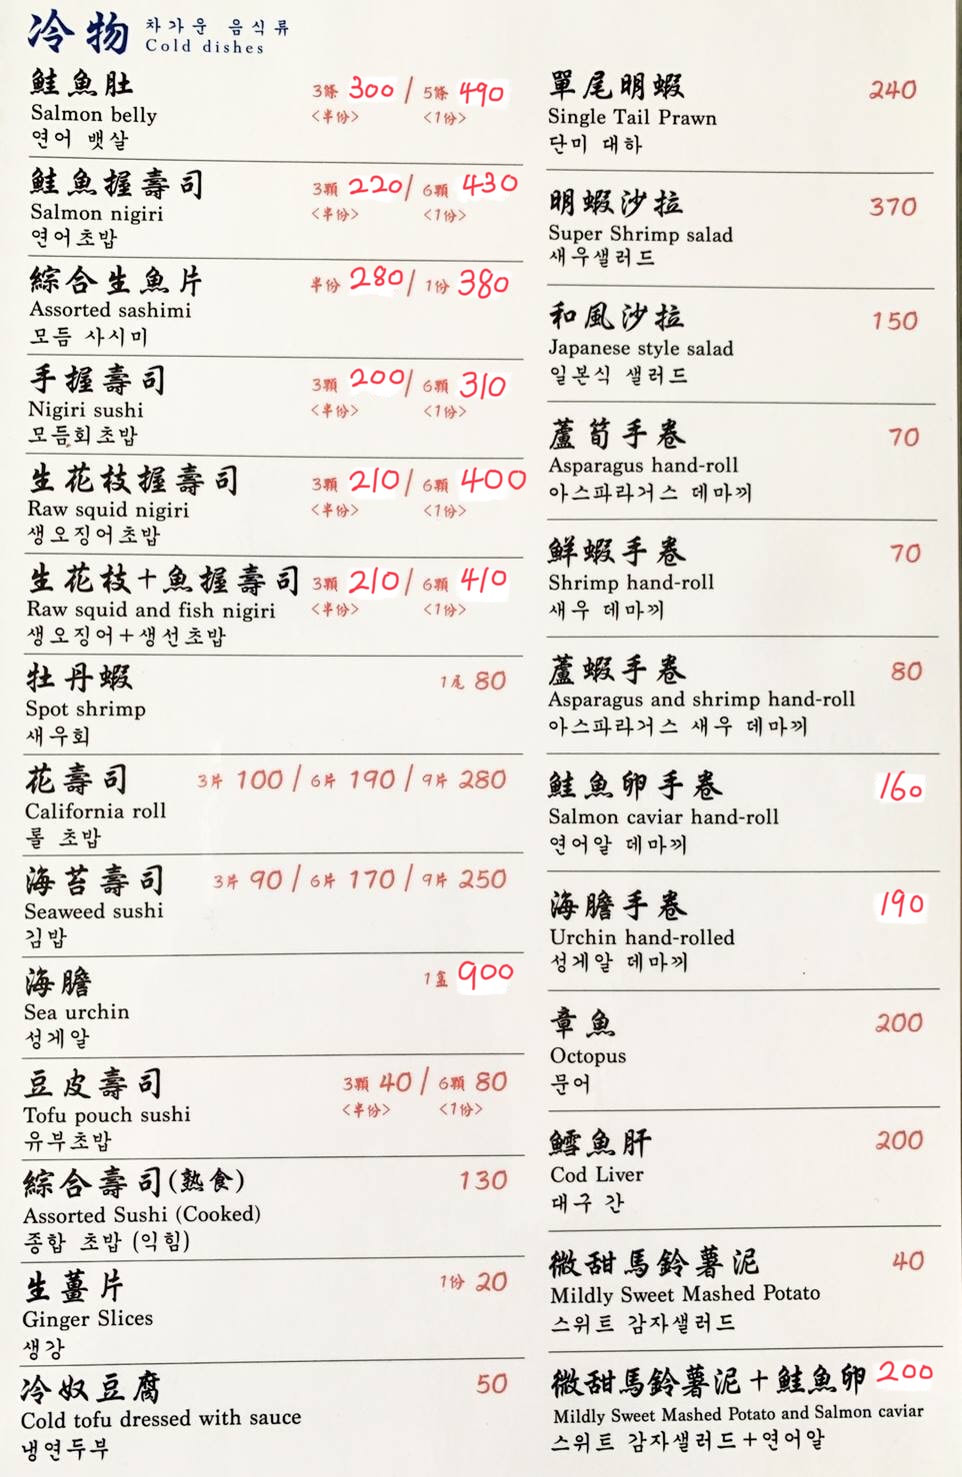 冷物 차가운 음식류
Cold dishes
鮭魚肚 3條 300 / 5條 490
Salmon belly <半份> <1份>
연어 뱃살
鮭魚握壽司 3顆 220 / 6顆 430
Salmon nigiri <半份> <1份>
연어초밥
綜合生魚片 半份 280 / 1份 380
Assorted sashimi
모듬 사시미
手握壽司 3顆 200 / 6顆 310
Nigiri sushi <半份> <1份>
모듬회초밥
生花枝握壽司 3顆 210 / 6顆 400
Raw squid nigiri <半份> <1份>
생오징어초밥
生花枝+魚握壽司 3顆 210 / 6顆 410
Raw squid and fish nigiri <半份> <1份>
생오징어+생선초밥
牡丹蝦 1尾 80
Spot shrimp
새우회
花壽司 3片 100 / 6片 190 / 9片 280
California roll
롤 초밥
海苔壽司 3片 90 / 6片 170 / 9片 250
Seaweed sushi
김밥
海膽 1盒 900
Sea urchin
성게알
豆皮壽司 3顆 40 / 6顆 80
Tofu pouch sushi <半份> <1份>
유부초밥
綜合壽司(熟食) 130
Assorted Sushi (Cooked)
종합 초밥 (익힘)
生薑片 1份 20
Ginger Slices
생강
冷奴豆腐 50
Cold tofu dressed with sauce
냉연두부
單尾明蝦 240
Single Tail Prawn
단미 대하
明蝦沙拉 370
Super Shrimp salad
새우샐러드
和風沙拉 150
Japanese style salad
일본식 샐러드
蘆筍手卷 70
Asparagus hand-roll
아스파라거스 데마끼
鮮蝦手卷 70
Shrimp hand-roll
새우 데마끼
蘆蝦手卷 80
Asparagus and shrimp hand-roll
아스파라거스 새우 데마끼
鮭魚卵手卷 160
Salmon caviar hand-roll
연어알 데마끼
海膽手卷 190
Urchin hand-rolled
성게알 데마끼
章魚 200
Octopus
문어
鱈魚肝 200
Cod Liver
대구 간
微甜馬鈴薯泥 40
Mildly Sweet Mashed Potato
스위트 감자샐러드
微甜馬鈴薯泥+鮭魚卵 200
Mildly Sweet Mashed Potato and Salmon caviar
스위트 감자샐러드+연어알